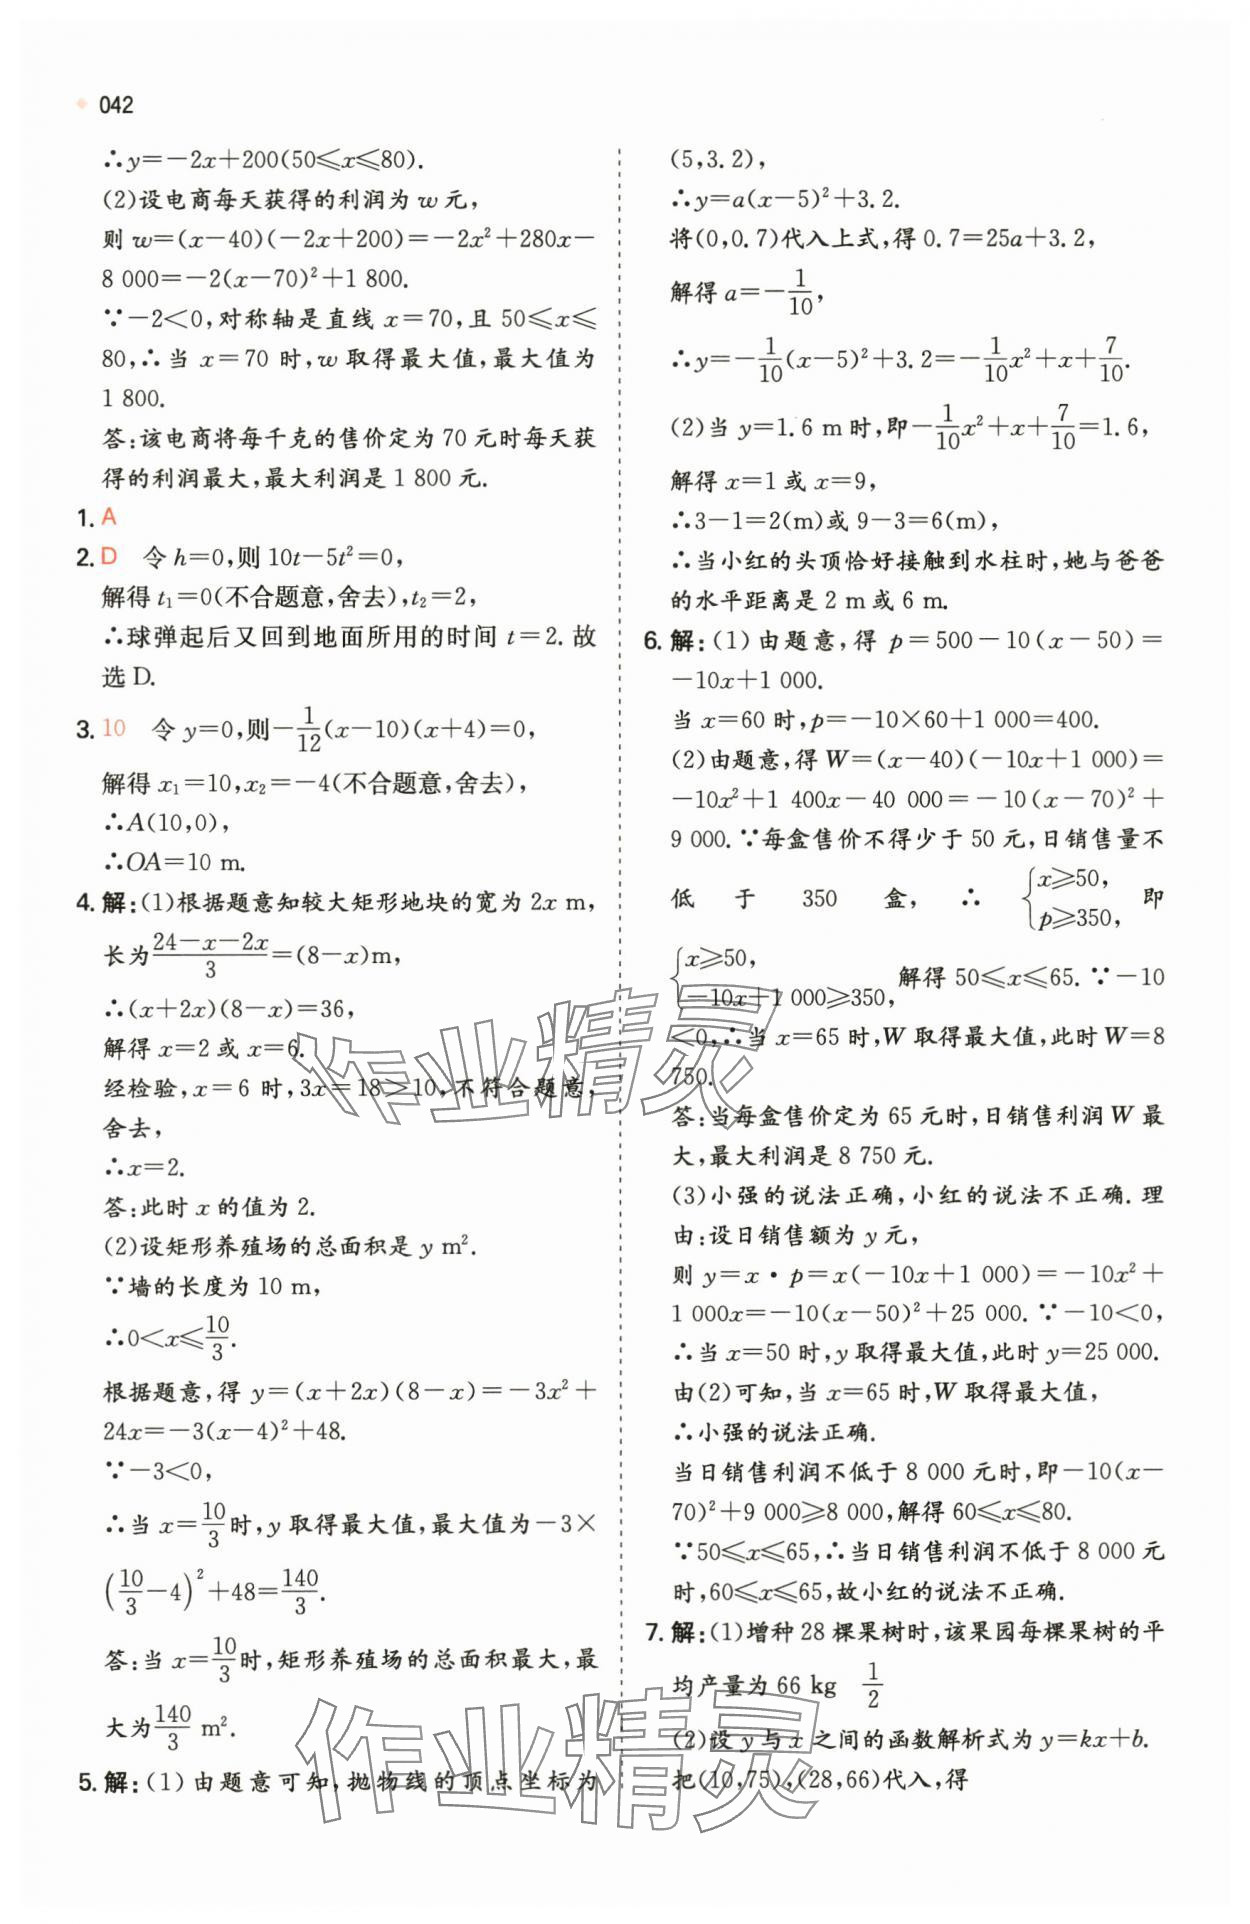 042
∴y=-2x+200(50≤x≤80).
(2)设电商每天获得的利润为 w 元,
则 w=(x-40)(-2x+200)=-2x²+280x-
8 000=-2(x-70)²+1 800.
∵-2<0,对称轴是直线 x=70,且 50≤x≤
80,∴当 x=70 时,w 取得最大值,最大值为
1 800.
答:该电商将每千克的售价定为 70 元时每天获
得的利润最大,最大利润是 1 800 元.
1. A
2. D 令 h=0,则 10t-5t²=0,
解得 t₁=0(不合题意,舍去),t₂=2,
∴球弹起后又回到地面所用的时间 t=2. 故
选 D.
3. 10 令 y=0,则-1/12(x-10)(x+4)=0,
解得 x₁=10,x₂=-4(不合题意,舍去),
∴A(10,0),
∴OA=10 m.
4. 解:(1)根据题意知较大矩形地块的宽为 2x m,
长为(24-x-2x)/3=(8-x)m,
∴(x+2x)(8-x)=36,
解得 x=2 或 x=6.
经检验,x=6 时,3x=18>10,不符合题意,
舍去,
∴x=2.
答:此时 x 的值为 2.
(2)设矩形养殖场的总面积是 y m².
∵墙的长度为 10 m,
∴0<x≤10/3.
根据题意,得 y=(x+2x)(8-x)=-3x²+
24x=-3(x-4)²+48.
∵-3<0,
∴当 x=10/3时,y 取得最大值,最大值为-3×
(10/3-4)²+48=140/3.
答:当 x=10/3时,矩形养殖场的总面积最大,最
大为140/3 m².
5. 解:(1)由题意可知,抛物线的顶点坐标为
(5,3.2),
∴y=a(x-5)²+3.2.
将(0,0.7)代入上式,得 0.7=25a+3.2,
解得 a=-1/10,
∴y=-1/10(x-5)²+3.2=-1/10x²+x+7/10.
(2)当 y=1.6 m 时,即-1/10x²+x+7/10=1.6,
解得 x=1 或 x=9,
∴3-1=2(m)或 9-3=6(m),
∴当小红的头顶恰好接触到水柱时,她与爸爸
的水平距离是 2 m 或 6 m.
6. 解:(1)由题意,得 p=500-10(x-50)=
-10x+1 000.
当 x=60 时,p=-10×60+1 000=400.
(2)由题意,得 W=(x-40)(-10x+1 000)=
-10x²+1 400x-40 000=-10(x-70)²+
9 000.∵每盒售价不得少于 50 元,日销售量不
低于 350 盒,∴{x≥50, p≥350, 即
{x≥50, -10x+1 000≥350, 解得 50≤x≤65.∵-10
<0,∴当 x=65 时,W 取得最大值,此时 W=8
750.
答:当每盒售价定为 65 元时,日销售利润 W 最
大,最大利润是 8 750 元.
(3)小强的说法正确,小红的说法不正确. 理
由:设日销售额为 y 元,
则 y=x·p=x(-10x+1 000)=-10x²+
1 000x=-10(x-50)²+25 000.∵-10<0,
∴当 x=50 时,y 取得最大值,此时 y=25 000.
由(2)可知,当 x=65 时,W 取得最大值,
∴小强的说法正确.
当日销售利润不低于 8 000 元时,即-10(x-
70)²+9 000≥8 000,解得 60≤x≤80.
∵50≤x≤65,∴当日销售利润不低于 8 000 元
时,60≤x≤65,故小红的说法不正确.
7. 解:(1)增种 28 棵果树时,该果园每棵果树的平
均产量为 66 kg 1/2
(2)设 y 与 x 之间的函数解析式为 y=kx+b.
把(10,75),(28,66)代入,得
作业精灵
作业精灵